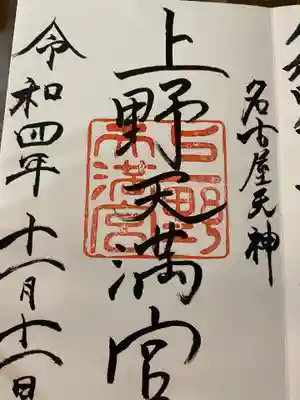 名古屋天神
上野天満宮
上野天満宮
令和四年十一月十一日